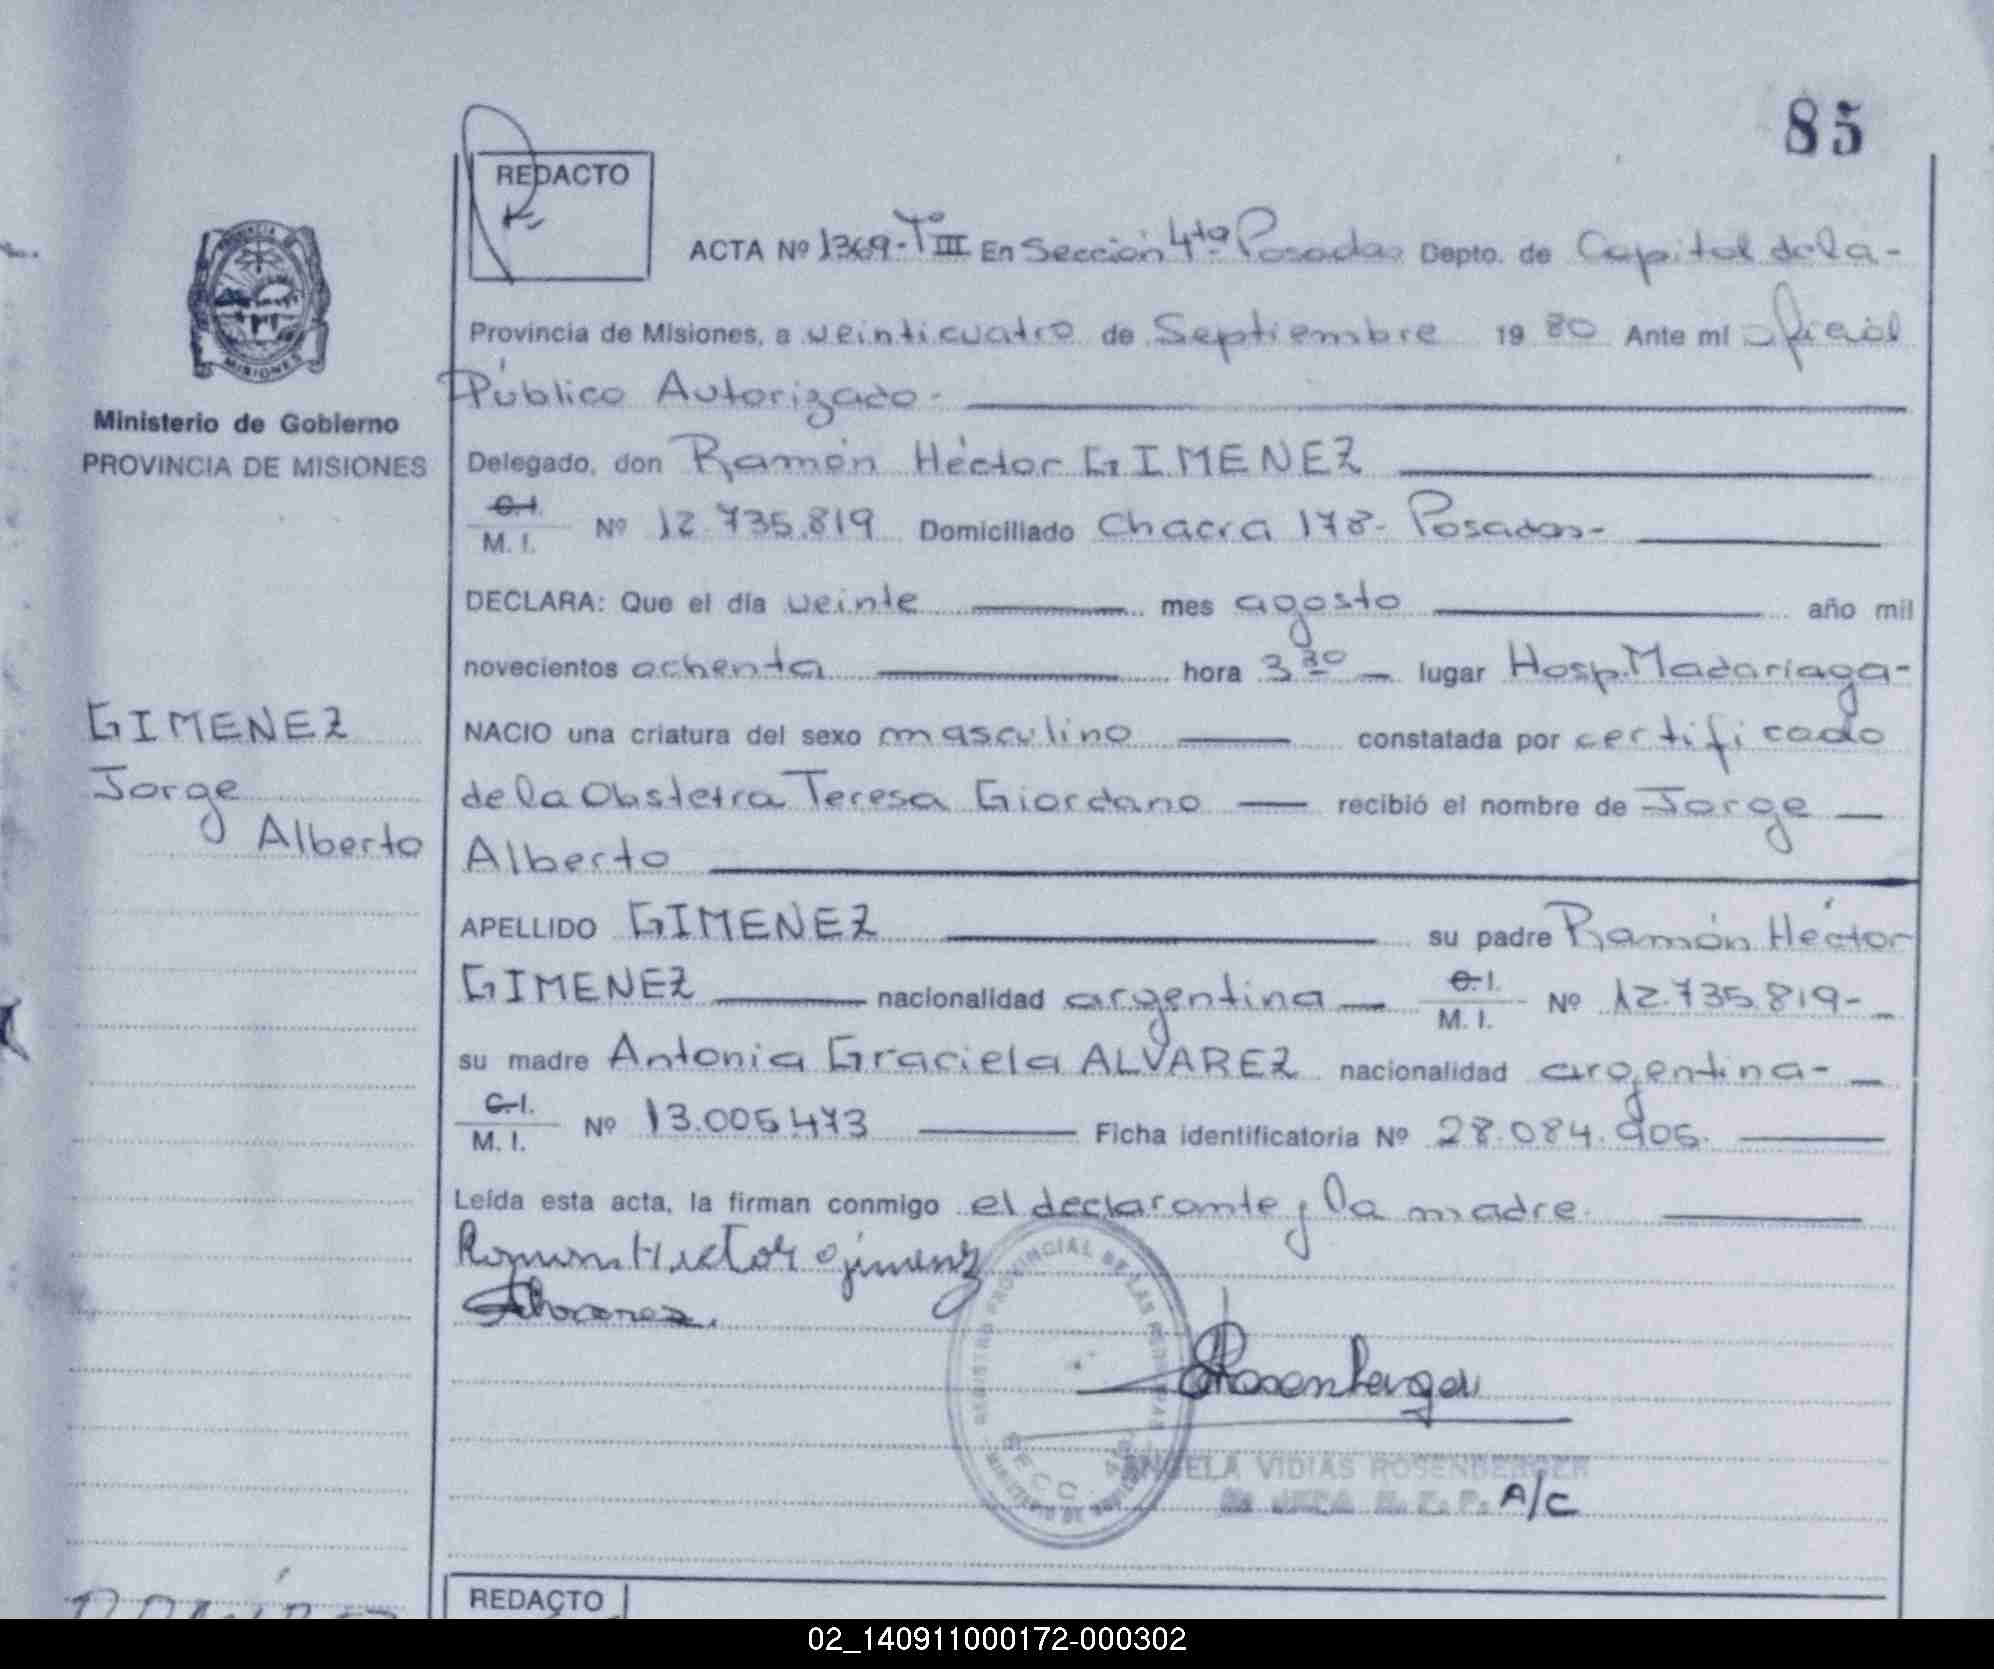 85
REDACTO
ACTA Nº 1369-Tº III En Sección 4ta Posadas Depto. de Capital de la-
Provincia de Misiones, a veinticuatro de Septiembre 1980 Ante mi Oficial
Público Autorizado-
Delegado, don Ramón Héctor GIMENEZ
C.I. M. I. Nº 12.735.819 Domiciliado Chacra 178- Posadas-
DECLARA: Que el día veinte mes agosto año mil
novecientos ochenta hora 3 30 lugar Hosp. Madariaga-
NACIO una criatura del sexo masculino constatada por certificado
de la Obstetra Teresa Giordano recibió el nombre de Jorge
Alberto
APELLIDO GIMENEZ su padre Ramón Héctor
GIMENEZ nacionalidad argentina C.I. M. I. Nº 12.735.819-
su madre Antonia Graciela ALVAREZ nacionalidad argentina-
C.I. M. I. Nº 13.005.473 Ficha identificatoria Nº 28.084.905.
Leída esta acta, la firman conmigo el declarante y la madre.
Ramon Hector Gimenez
Alvarez.
Rosenberger
REGISTRO PROVINCIAL DE LAS PERSONAS
SECC. 4ta
MINISTERIO DE GOBIERNO
ANGELA VIDIAS ROSENBERGER
JEFA A/C
PROVINCIA DE
MISIONES
Ministerio de Gobierno
PROVINCIA DE MISIONES
GIMENEZ
Jorge
Alberto
REDACTO
02_140911000172-000302